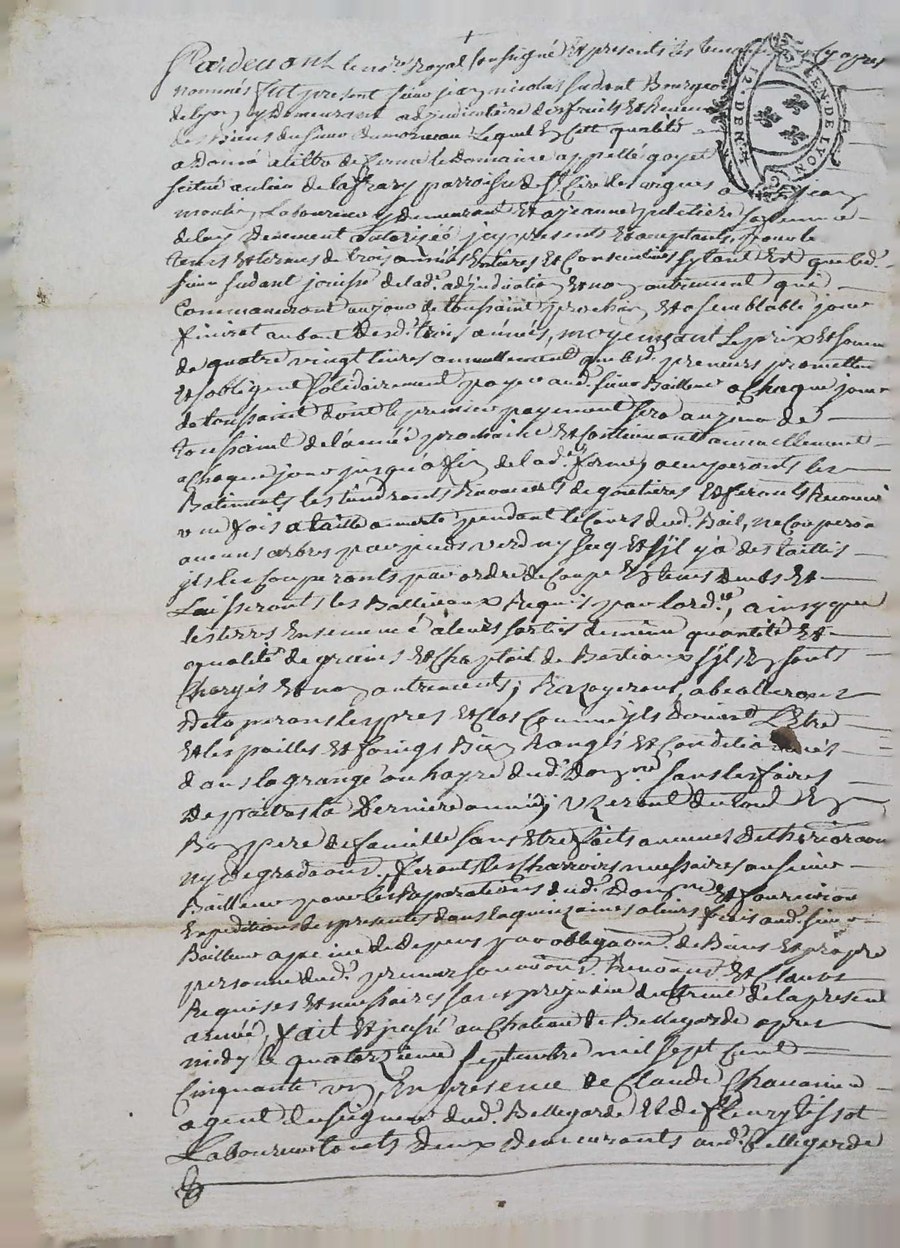 Pardevant le no.re Royal soussigné Et presents Les temoins
nommés fut present sieur jean nicolas sudant Bourgeois
de lyon y demeurant adjudicataire des fruits Et Revenus
des Biens du sieur Lequel En Cette qualité
a Donné a titre de ferme le Domaine appellé goyet
scitué au lieu de lafray parroisse de st. Cire de
Laboureur y demeurant Et a jeanne peletiere sa femme
de luy Dement autorisée jcy presents Et acceptants, pour le
tems Et termes de trois années Entieres Et Consecutives sytant Est que led.
sieur sudant jouisse de lad. adjudication Et non autrement qui
Commanceront au jour de toussaint prochain Et a semblable jour
finiront au bout Desd. trois années, moyennant Le prix Et somme
de quatre vingt livres annuellement que led. preneurs promettent
Et s'obligent solidairement payer aud. sieur Bailleur a Chaque jour
de toussaint dont le premier payement sera au jour de
toussaint de l'année prochaine Et Continuant annuellement
a chaque jour jusqu'a fin de lad. ferme, occuperonts les
Batiments les tiendronts Recouverts de goutieres Et feronts Recouvrir
une fois a taille ouverte pendant le Cours dud. Bail, ne Couperons
aucuns arbres par pieds verd ny secq Et s'jl y a des taillis
jls les Couperonts par ordre de Coupe Et tems dubs Et
Laisseronts les Balliveaux Requis par l'ord.ce, ainsy que
les terres Ensemencé a leurs sorties de même quantité Et
qualité de grains Et Cheptail de Bestiaux s'jls En sonts
Chargés Et non autrements; Razoyeronts,
les prés Et Clos Comme jls doivent L'Etre
Et les pailles Et foings Bien Rangés Et Conditionnés
dans la grange ou du d. Dom.ne sans les faires
la Derniere année; Uzeront du tout En
Bon pere de famille sans Etre faits aucunes Detheriora.on
ny Degradaons, feronts les Charrois necessaires au sieur
Bailleur pour les Reparations dud. Dom.ne Et fourniron
Expeditions des presentes dans la quinzaine a leurs frais aud. sieur
Bailleur a peine de Depens par obligaon. de Biens Et propre
personne dud. preneur soumions. Renonons. Et Clauses
Requises Et necessaires sans prejudice du terme de la presente
année, fait Et passé au Chateau de Bellegarde apres
midy le quatorzieme septembre mil sept Cent
Cinquante un, En presence de Claude
agent du seigneur dud. Bellegarde Et de fleury tissot
Laboureur touts Deux Demeurants aud. Bellegarde
GEN. DE LYON
2. DEN.rs